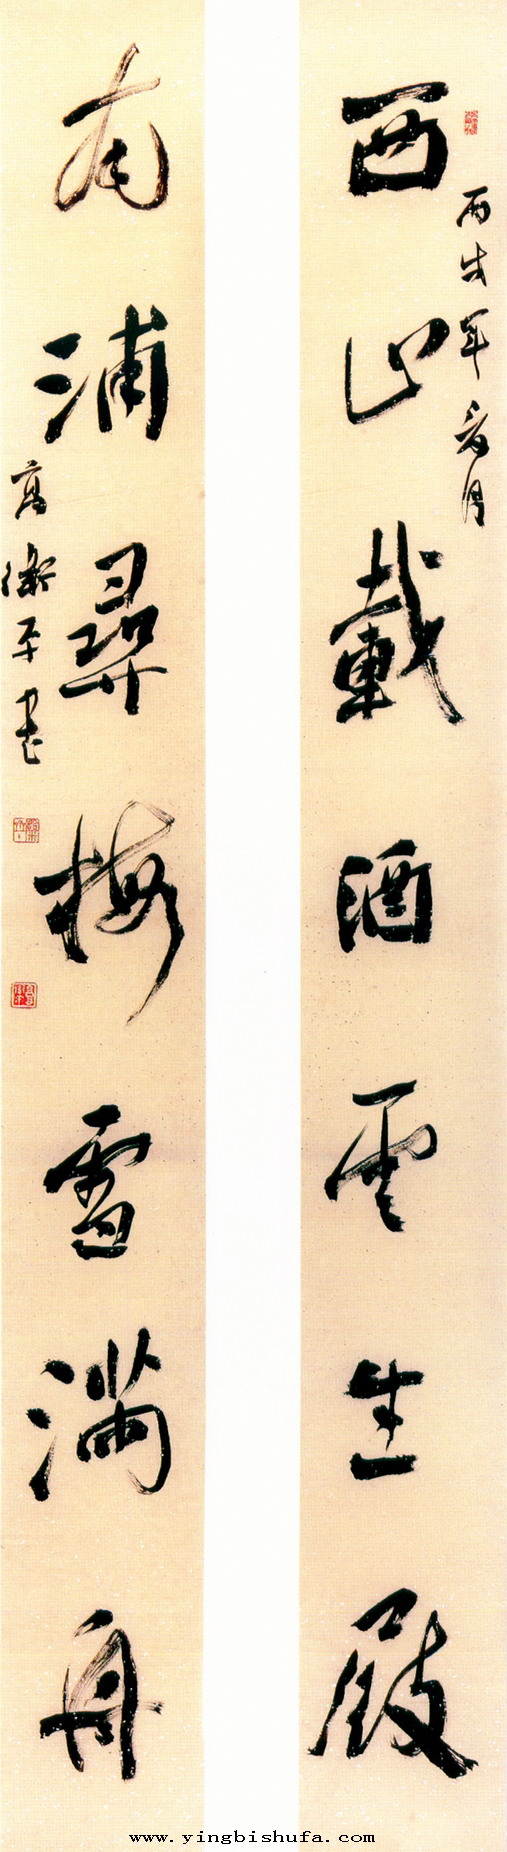 丙戌年春月
西山載酒雲生屐
南浦尋梅雪滿舟
高衛平書
www.yingbishufa.com